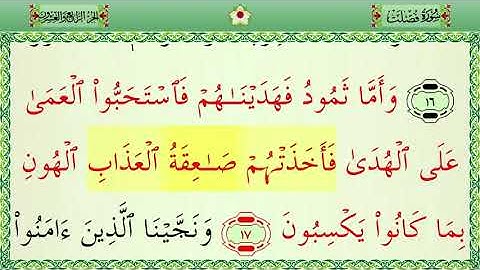 سُورَةُ فُصِّلَتْ
الجزء الرابع والعشرون
١٦ وَأَمَّا ثَمُودُ فَهَدَيْنَـٰهُمْ فَٱسْتَحَبُّوا۟ ٱلْعَمَىٰ
عَلَى ٱلْهُدَىٰ فَأَخَذَتْهُمْ صَـٰعِقَةُ ٱلْعَذَابِ ٱلْهُونِ
بِمَا كَانُوا۟ يَكْسِبُونَ ١٧ وَنَجَّيْنَا ٱلَّذِينَ ءَامَنُوا۟